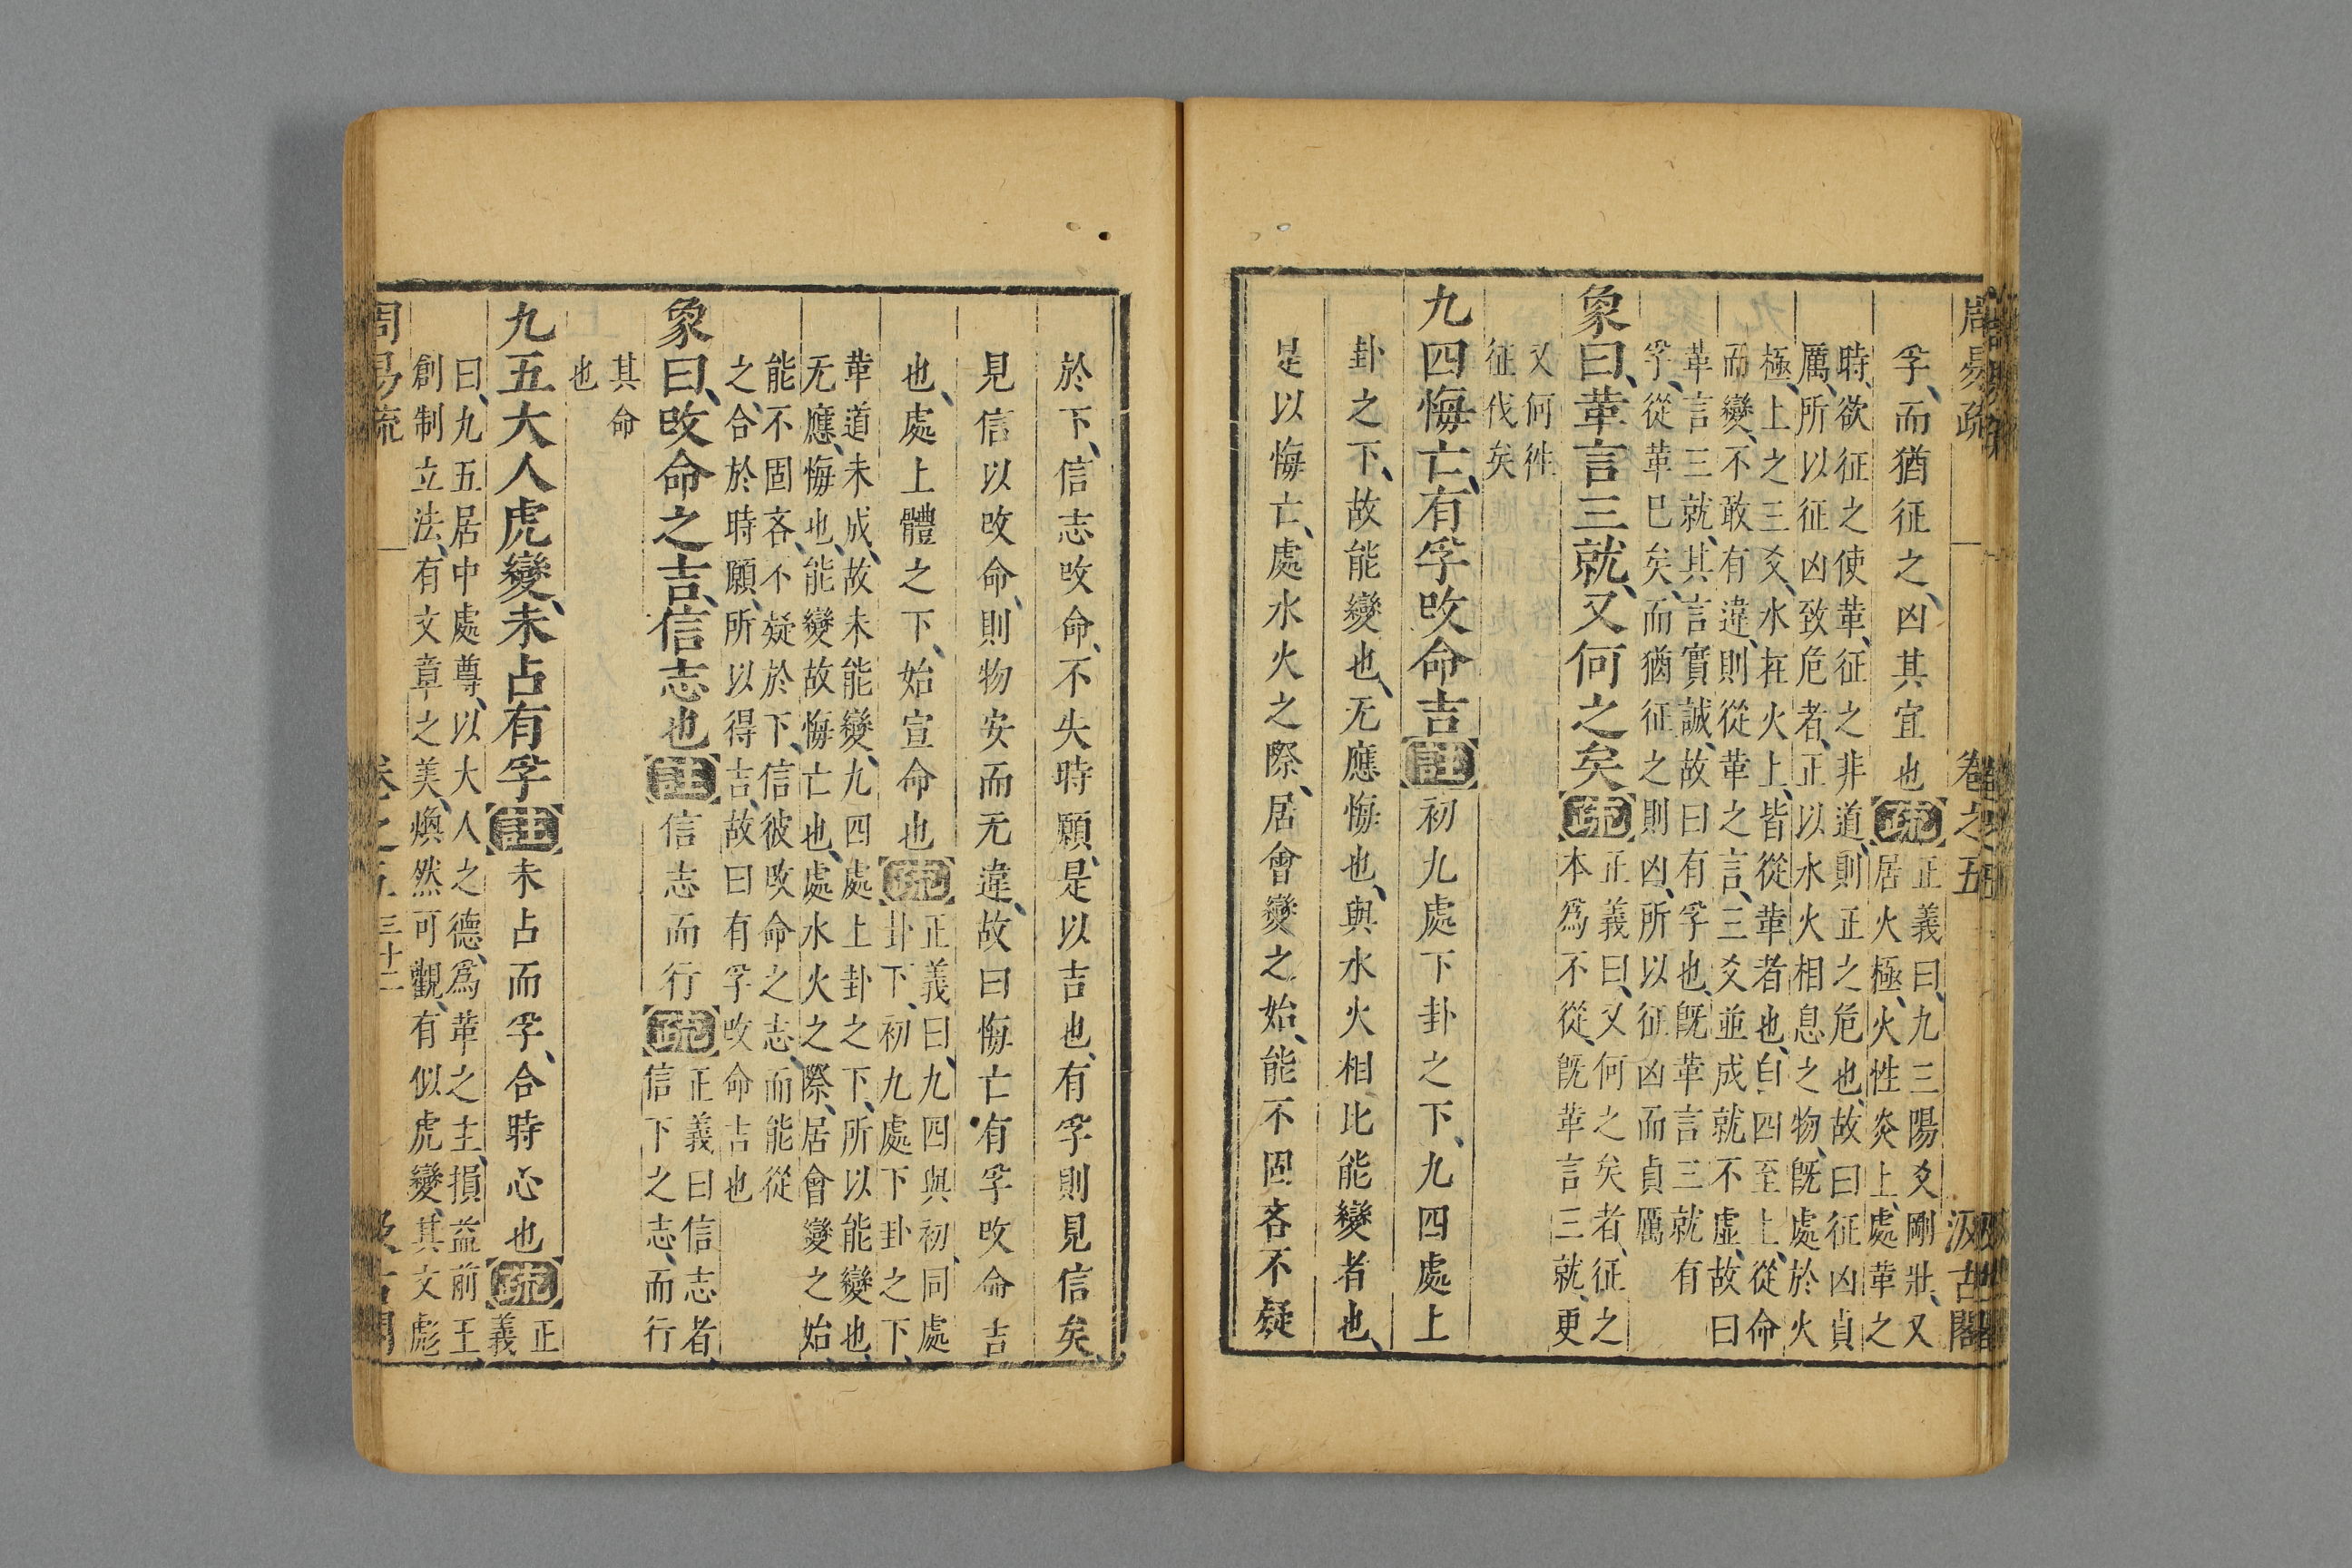 周易疏 卷之五 汲古閣
孚、而猶征之、凶其宜也疏正義曰、九三陽爻剛壯、又
居火極、火性炎上、處革之
時、欲征之使革、征之非道、則正之危也、故曰征凶貞
厲、所以征凶致危者、正以水火相息之物、旣處於火
極、上之三爻、水在火上、皆從革者也、自四至上、從命
而變、不敢有違、則從革之言、三爻並成就不虛、故曰
革言三就、其言實誠、故曰有孚也、旣革言三就有
孚、從革巳矣、而猶征之則凶、所以征凶而貞厲
象曰、革言三就、又何之矣疏正義曰、又何之矣者、征之
本爲不從、旣革言三就、更
又何徃
征伐矣
九四悔亡、有孚改命吉註初九處下卦之下、九四處上
卦之下、故能變也、无應悔也、與水火相比能變者也、
是以悔亡、處水火之際、居會變之始、能不固吝不疑
於下、信志改命、不失時願、是以吉也、有孚則見信矣、
見信以改命、則物安而无違、故曰悔亡有孚改命吉
也、處上體之下、始宣命也疏正義曰、九四與初、同處
卦下、初九處下卦之下、
革道未成、故未能變、九四處上卦之下、所以能變也、
无應、悔也、能變故悔亡也、處水火之際、居會變之始、
能不固吝、不疑於下、信彼改命之志、而能從
之、合於時願、所以得吉、故曰有孚改命吉也
象曰、改命之吉、信志也註信志而行疏正義曰信志者、
信下之志、而行
其命
也
九五大人虎變、未占有孚註未占而孚、合時心也疏正
義
曰、九五居中處尊、以大人之德、爲革之主、損益前王、
創制立法、有文章之美、煥然可觀、有似虎變、其文彪
周易疏 卷之五 三十二 汲古閣